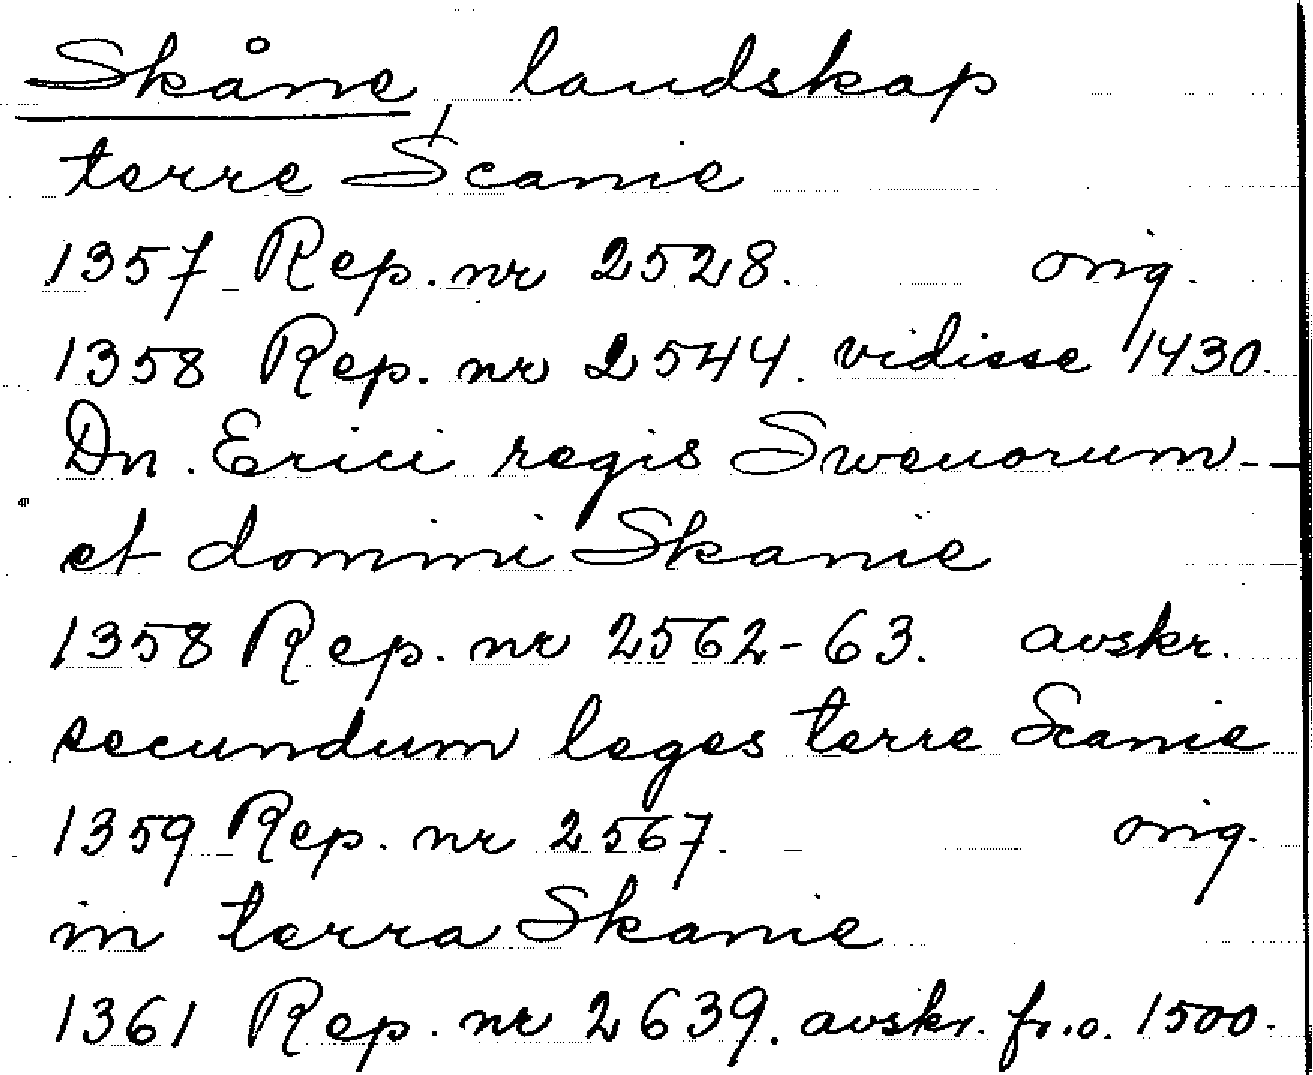 Skåne, landskap
terre Scanie
1357 Rep. nr 2528. orig.
1358 Rep. nr 2544. vidisse 1430.
Dn. Erici regis Swenorum
et domini Skanie
1358 Rep. nr 2562-63. avskr.
secundum leges terre Scanie
1359 Rep. nr 2567. orig.
in terra Skanie
1361 Rep. nr 2639. avskr. fr.o. 1500.